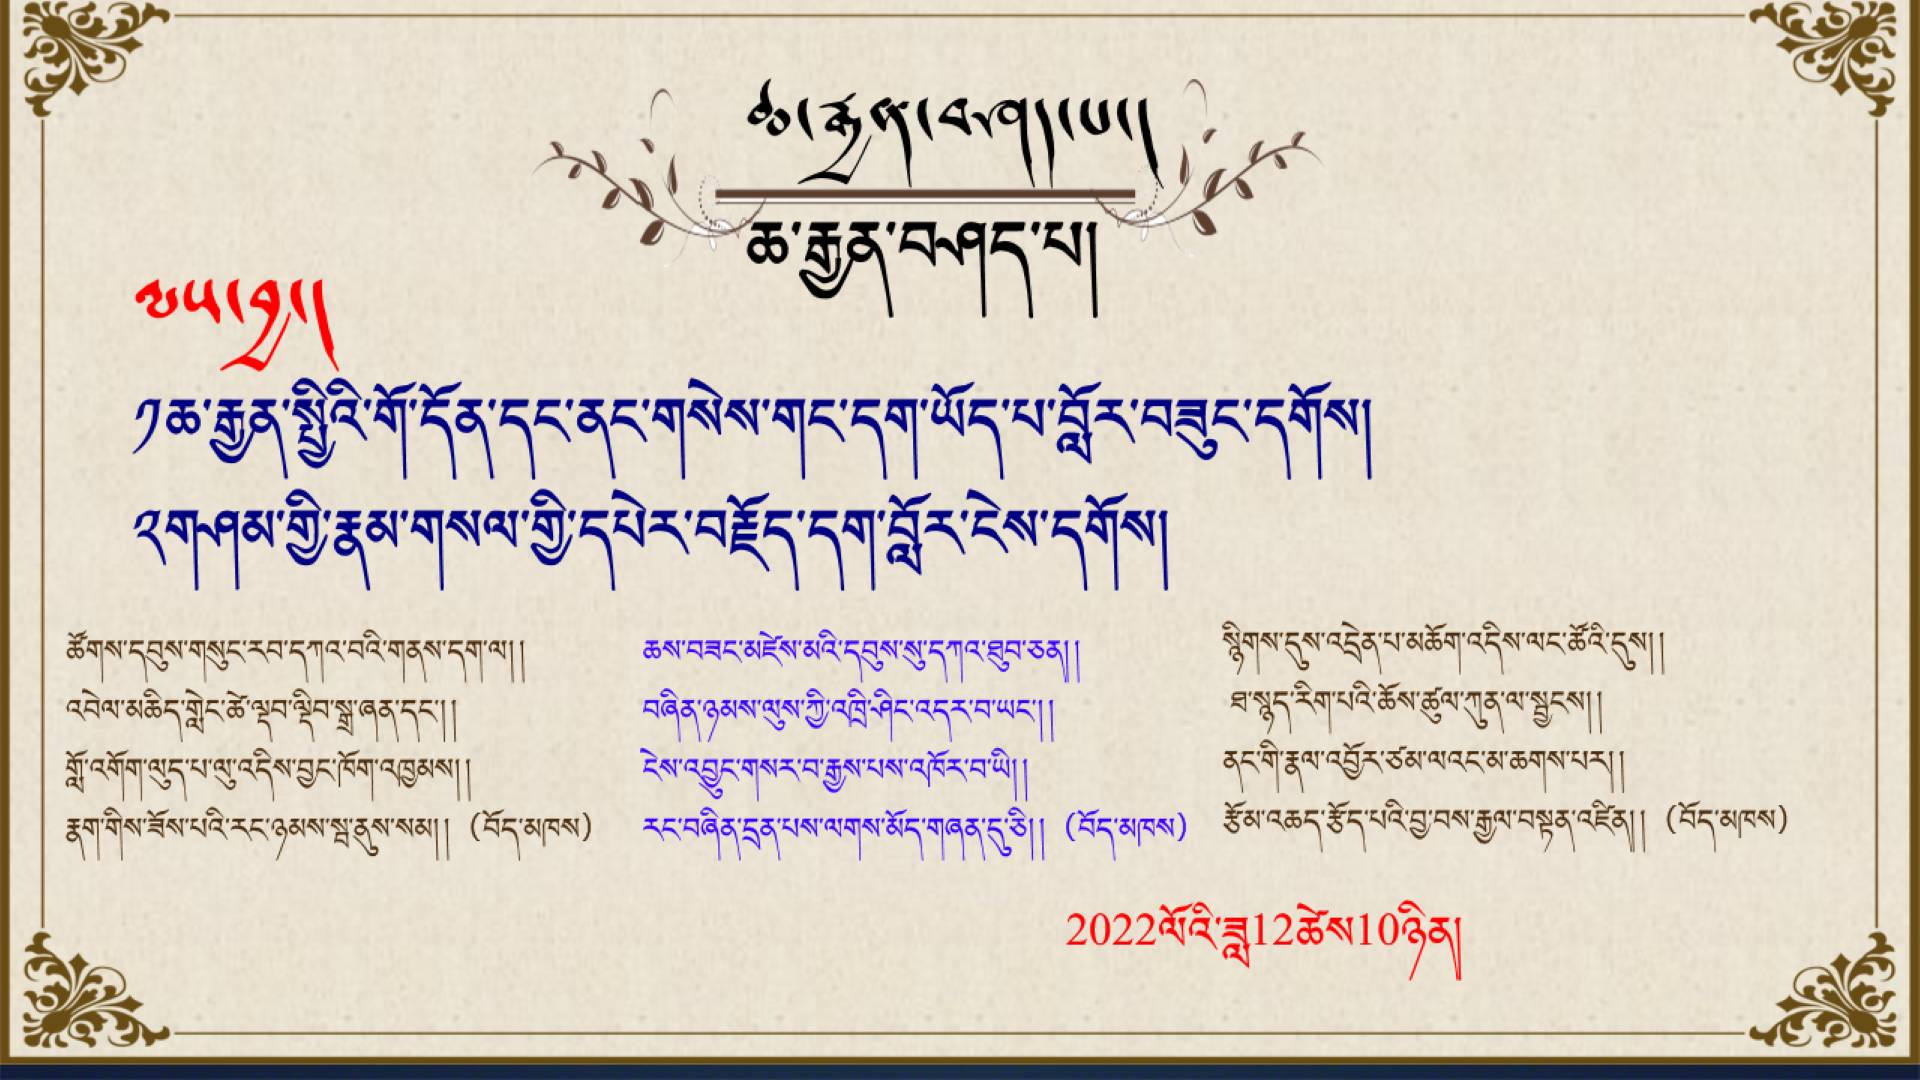 ཆ་རྐྱེན་བཤད་པ།
ཆ་རྐྱེན་བཤད་པ།
༡ཆ་རྐྱེན་སྤྱིའི་གོ་དོན་དང་ནང་གསེས་གང་དག་ཡོད་པ་བློར་བཟུང་དགོས།
༢གཤམ་གྱི་རྣམ་གསལ་གྱི་དཔེར་བརྗོད་དག་བློར་ངེས་དགོས།
ཚོགས་དབུས་གསུང་རབ་དཀའ་བའི་གནས་དག་ལ།།
འབེལ་མཆིད་གླེང་ཚེ་ལྡབ་ལྡིབ་སྒྲ་ཞན་དང་།།
གློ་འགོག་ལུད་པ་ལུ་འདིས་བྱང་ཁོག་འཁྱམས།།
རྣག་གིས་ཟོས་པའི་རང་ཉམས་སྨྲ་ནུས་སམ།། (བོད་མཁས)
ཆས་བཟང་མཛེས་མའི་དབུས་སུ་དཀའ་ཐུབ་ཅན།།
བཞིན་ཉམས་ལུས་ཀྱི་འཁྲི་ཤིང་འདར་བ་ཡང་།།
ངེས་འབྱུང་གསར་བ་རྒྱས་པས་འཁོར་བ་ཡི།།
རང་བཞིན་དྲན་པས་ལགས་མོད་གཞན་དུ་ཅི།། (བོད་མཁས)
སྙིགས་དུས་འདྲེན་པ་མཆོག་འདིས་ལང་ཚོའི་དུས།།
ཐ་སྙད་རིག་པའི་ཆོས་ཚུལ་ཀུན་ལ་སྦྱངས།།
ནང་གི་རྣལ་འབྱོར་ཙམ་ལའང་མ་ཆགས་པར།།
རྩོམ་འཆད་རྩོད་པའི་བྱ་བས་རྒྱལ་བསྟན་འཛིན།། (བོད་མཁས)
2022ལོའི་ཟླ12ཚེས10ཉིན།